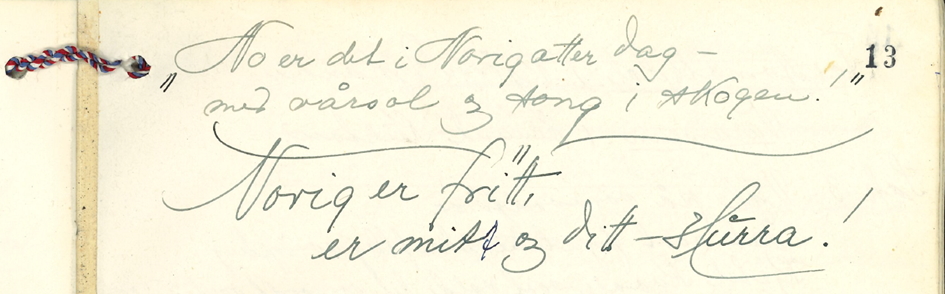 13
„No er det i Norig atter dag –
med vårsol og song i skogen!"
Norig er fritt,
er mitt og ditt – Hurra!